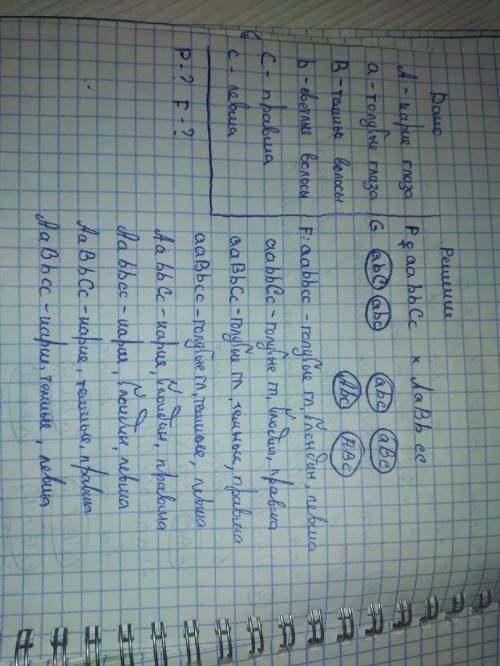 Дано
А - карие глаза
а - голубые глаза
В - темные волосы
b - светлые волосы
С - правша
с - левша
P - ? F - ?
Решение
P ♀ aabbCc × AaBb cc
G abC abc abc aBc
Abc ABc
F: aabbcc - голубые гл, блондин, левша
aabbCc - голубые гл, блондин, правша
aaBbCc - голубые гл, темные, правша
aaBbcc - голубые гл, темные, левша
AabbCc - карие, блондин, правша
Aabbcc - карие, блондин, левша
AaBbCc - карие, темные, правша
AaBbcc - карие, темные, левша